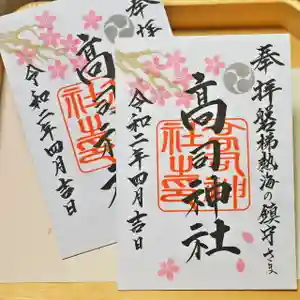 奉拝
高司神社
令和二年四月吉日
奉拝 磐梯熱海の鎮守さま
高司神社
令和二年四月吉日